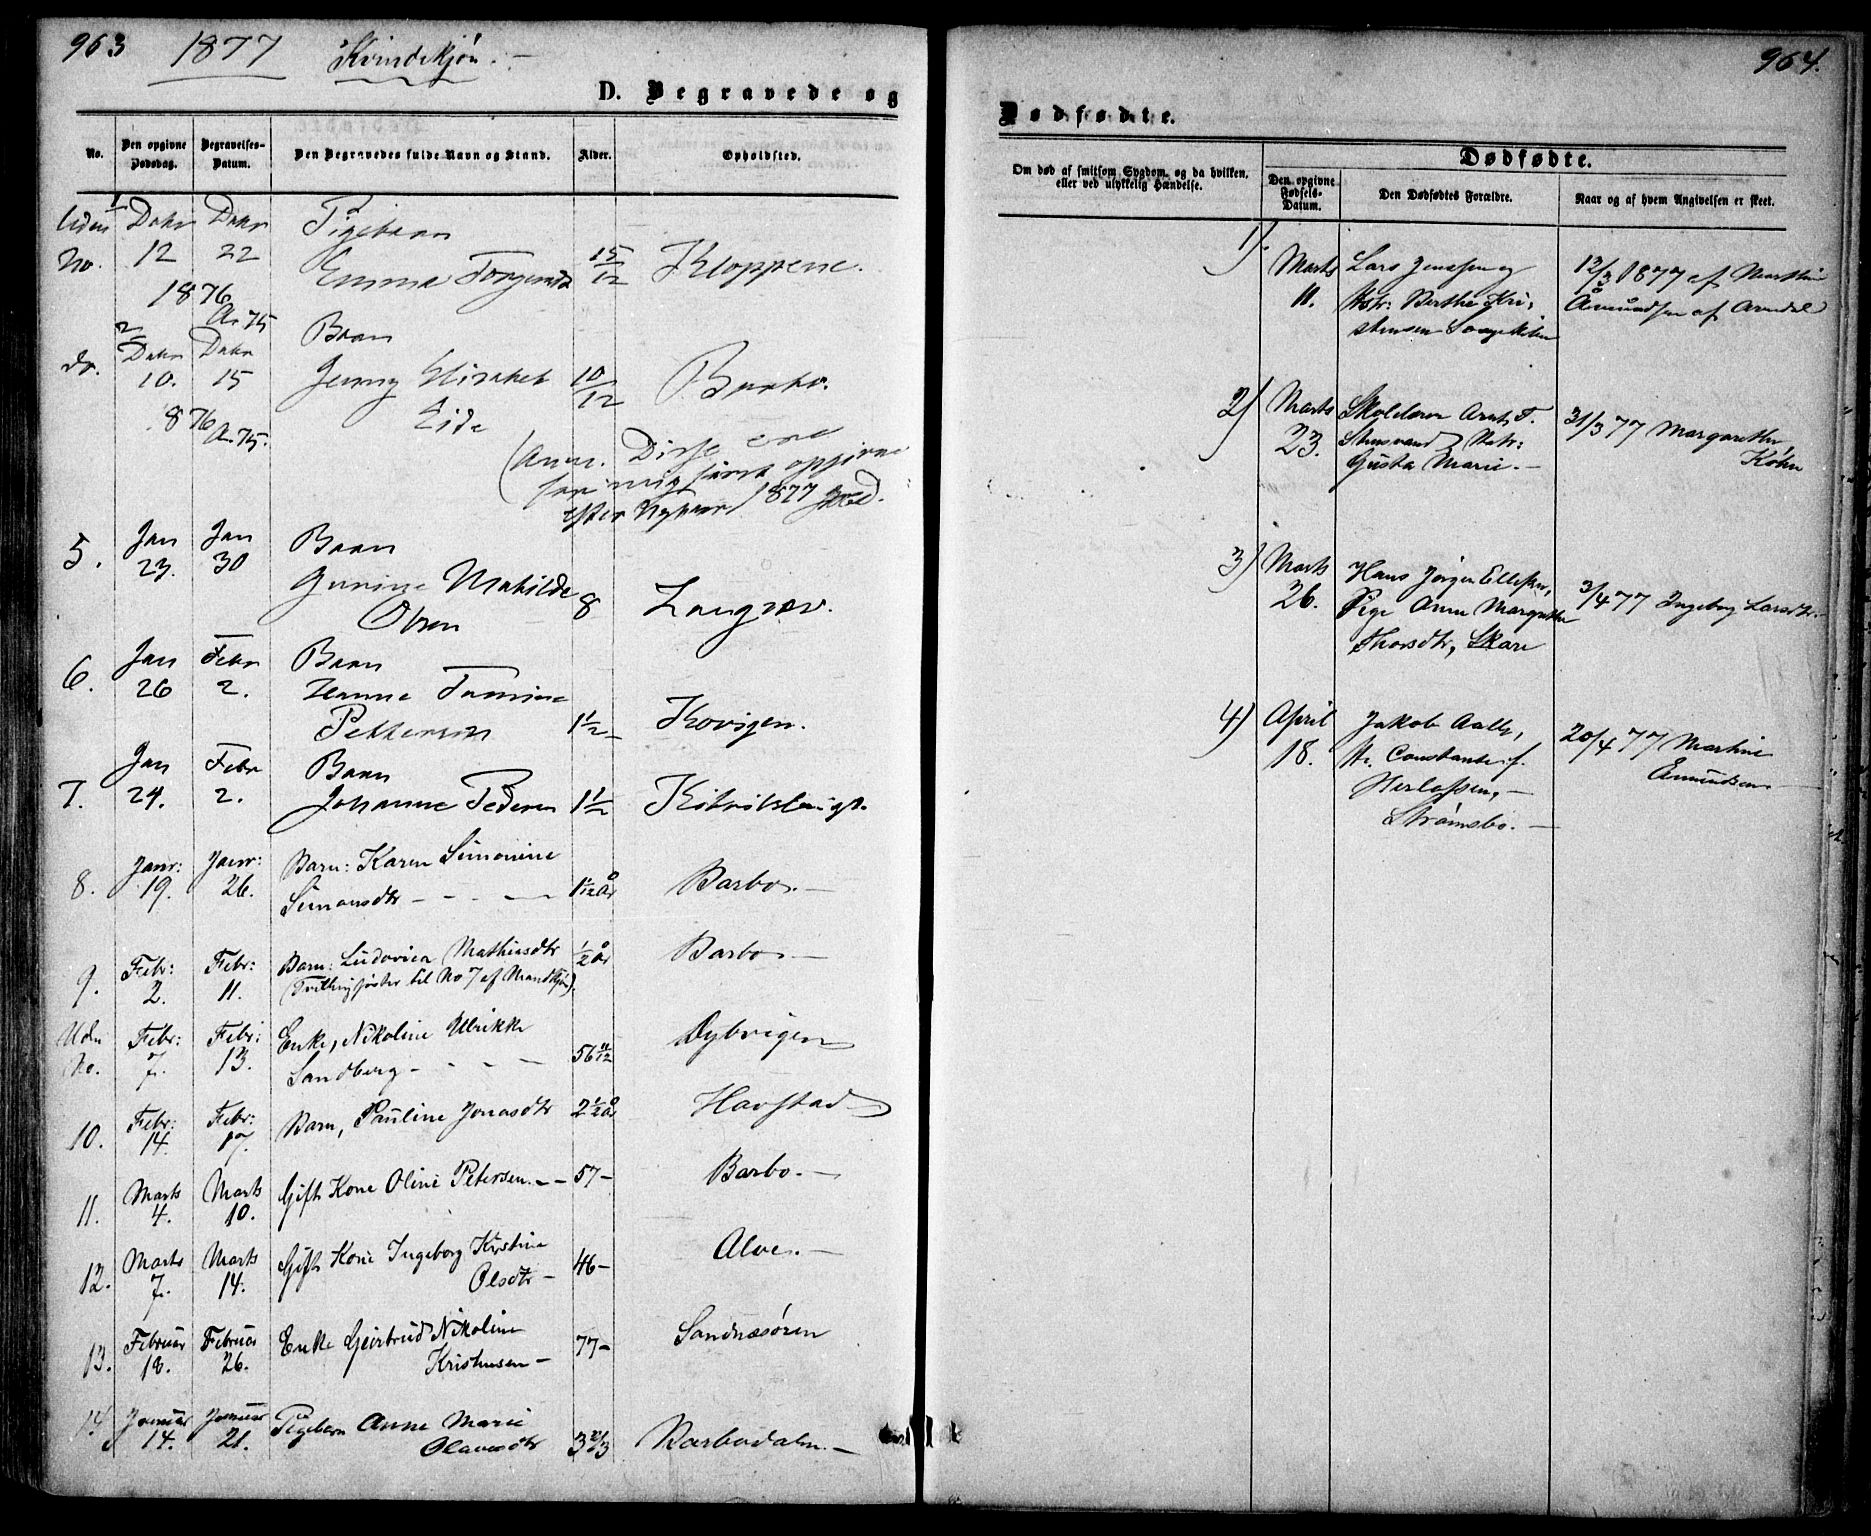 963 1877 Kvindekjøn.
D. Begravede og
No. Den opgivne Dødsdag. Begravelses-Datum. Den Begravedes fulde Navn og Stand. Alder. Opholdsted.
1/ Uden No. Debr 12 Debr 22 Pigebarn
1876 Emma 15/12 Kloppene.
A. 75
2/ do. Debr 10. Debr 15 Barn
Jenny 10/12 Barbo.
876 Eide
A. 75.
(Anm. Disse ere
for mig først opgivne
efter Nytaar 1877
5. Jan 23. Jan 30 Barn
Gunine Mathilde
Olsen 8 Langsæv.
6. Jan 26 Febr 2. Barn
Hanne Tomine
Pettersen 1 1/2 Kovigen.
7. Jan 24. Febr 2. Barn
Johanne Pedersen 1 1/2
8. Janr: 19. Janr: 26. Barn: Karen Simonine
Simonsdtr - - - 1 11/12 år Barbo. -
9. Febr: 2. Febr: 11. Barn: Ludovica Mathiasdtr 1/2 år Barbo. -
(Tvillingsøster til No 7 af Mandkjøn).
Uden No. Febr: 7. Febr: 13. Enke, Nikoline Ulrikke
Sandberg - - - - 56 11/12 Dybvigen
10. Febr: 14. Febr: 17. Barn, Pauline Jonasdtr 2 1/2 år Havstad
11. Marts 4. Marts 10. Gift Kone Oline Petersen. - - 57 - Barbo. -
12. Marts 7. Marts 14. Gift Kone Ingeborg Kristine
Olsdtr - 46 - Alve. -
13. Februar 18. Februar 26. Enke Geirtrud Nikoline
Kristensen - 77 - Sandnæsøren
14. Januar 14. Januar 21. Pigebarn Anne Marie
Olavesdtr 3 2/3 Barbodalen. -
964.
Dødfødte.
Om død af smitsom Sygdom, og da hvilken, eller ved ulykkelig Hændelse.
Dødfødte.
Den opgivne Fødsels-Datum. Den Dødfødtes Forældre. Naar og af hvem Angivelsen er skeet.
1) Marts 11. Lars Jensen og 12/3 1877 af Marthin
Hstr: Berthe Kri- Åmundsen af Arendal
stensen
2) Marts 23. Arnt T. 31/3 77 Margarethe
Stensvand, Hstr: Køhn
Gusta Marie. -
3) Marts 26. Hans Jørgen Ellefsen,
Pige Anne Margrethe 3/4 77 Ingeborg Larsdtr.
Thorsdtr, Skare
4) April 18. Jakob Aalby, 20/4 77 Martine
H. Constance f. Åmundsen
Herlofsen, -
Strømsbo. -